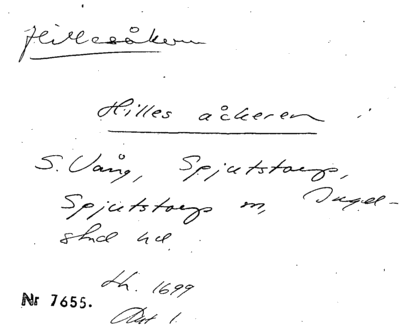 Hillesåkern
Hilles åckeren i
S. Vång, Spjutstorp,
Spjutstorps sn, Ingel-
stad hd.
Lh. 1699
Akt 1.
Nr 7655.